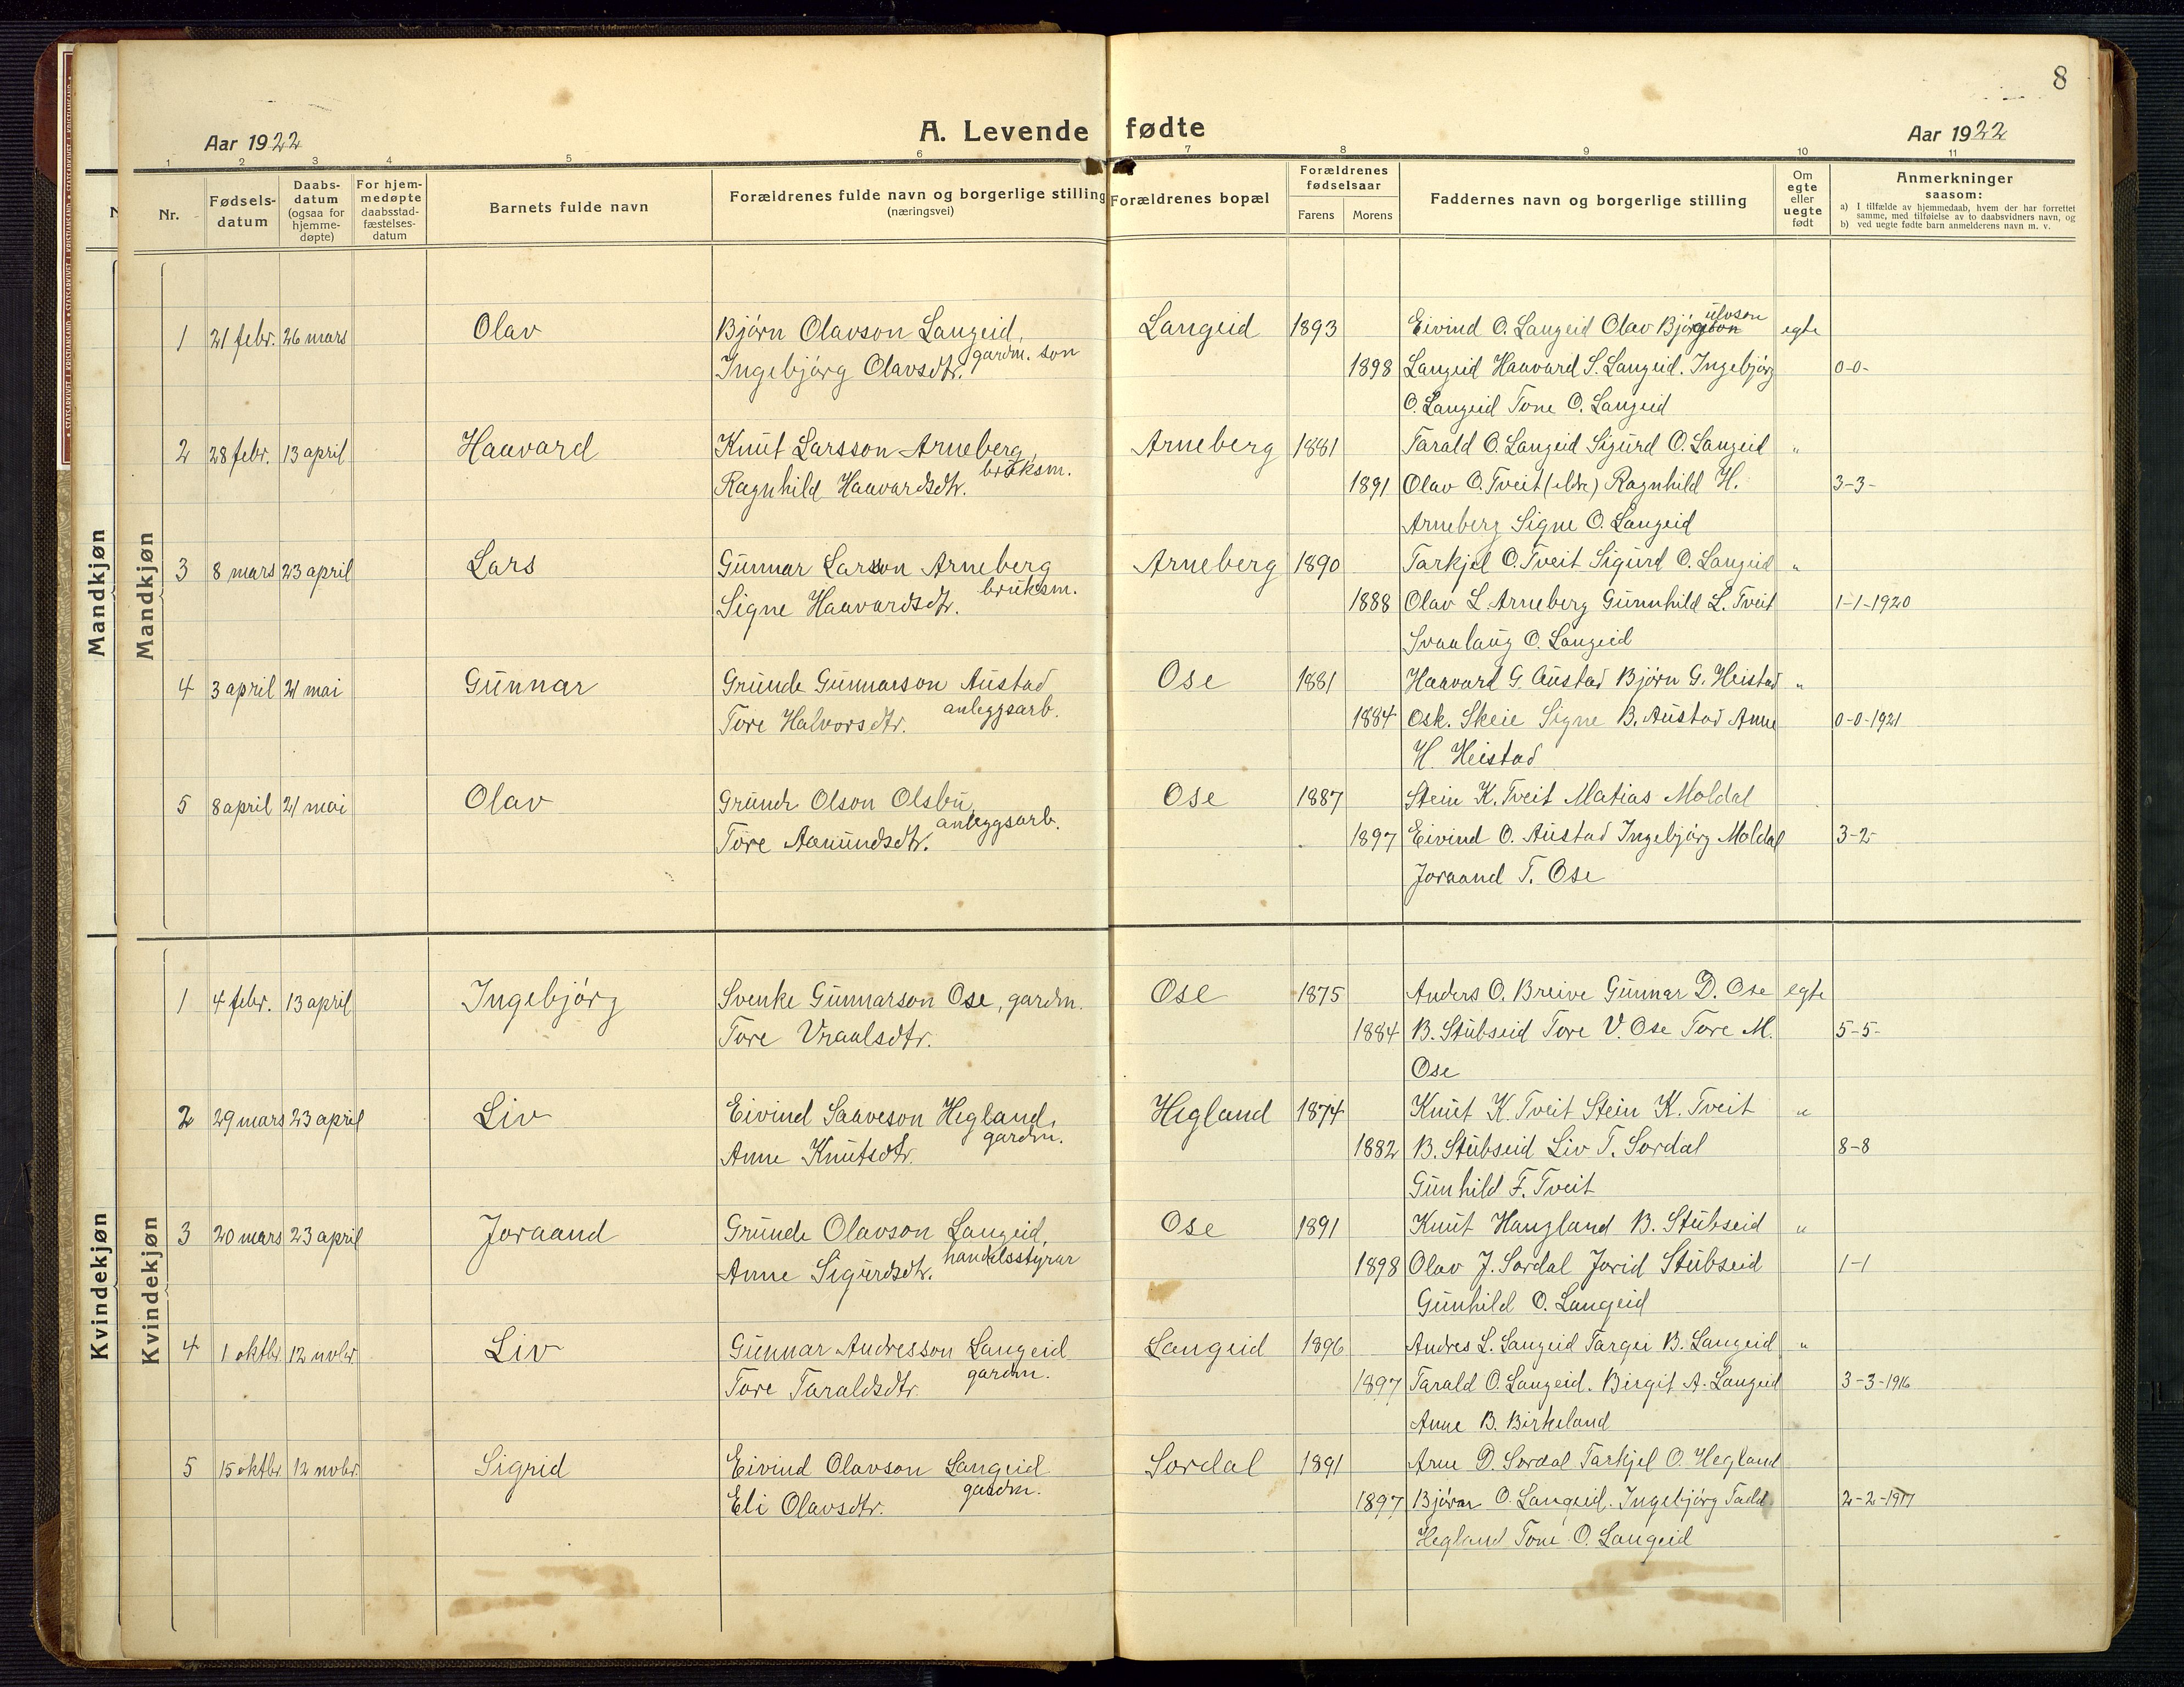 8
Aar 1922
A. Levende fødte
Aar 1922
1 2 3 4 5 6 7 8 9 10 11
Nr.
Fødsels-
datum
Daabs-
datum
(ogsaa for
hjemme-
døpte)
For hjem-
medøpte
daabsstad-
fæstelses-
datum
Barnets fulde navn
Forældrenes fulde navn og borgerlige stilling
(næringsvei)
Forældrenes bopæl
Forældrenes
fødselsaar
Farens
Morens
Faddernes navn og borgerlige stilling
Om
egte
eller
uegte
født
Anmerkninger
saasom:
a) I tilfælde av hjemmedaab, hvem der har forrettet
samme, med tilføielse av to daabsvidners navn, og
b) ved uegte fødte barn anmelderens navn m. v.
Mandkjøn
Mandkjøn
1 21 febr. 26 mars Olav Bjørn Olavson Langeid, Langeid 1893 Eivind O. Langeid Olav Bjørgulvson egte
Ingebjørg Olavsdtr. gardm. son 1898 Langeid Haavard S. Langeid. Ingebjørg 0-0-
O. Langeid Tone O. Langeid
2 28 febr. 13 april Haavard Knut Larsson Arneberg, Arneberg 1881 Tarald O. Langeid Sigurd O. Langeid "
Ragnhild Haavardsdtr. bruksm. 1891 Olav O. Tveit (eldre) Ragnhild H. 3-3-
Arneberg Signe O. Langeid
3 8 mars 23 april Lars Gunnar Larsson Arneberg Arneberg 1890 Tarkjel O. Tveit Sigurd O. Langeid "
Signe Haavardsdtr. bruksm. 1888 Olav L. Arneberg Gunnhild L. Tveit 1-1-1920
Svaalaug O. Langeid
4 3 april 21 mai Gunnar Grunde Gunnarson Austad Ose 1881 Haavard G. Austad Bjørn G. Heistad "
Tore Halvorsdtr. anleggsarb. 1884 Osk. Skeie Signe B. Austad Anne 0-0-1921
H. Heistad
5 8 april 21 mai Olav Grunde Olson Olsbu, Ose 1887 Stein K. Tveit Matias Moldal
Tore Aamundsdtr. anleggsarb. 1897 Eivind O. Austad Ingebjørg Moldal 3-2-
Joraand T. Ose
Kvindekjøn
Kvindekjøn
1 4 febr. 13 april Ingebjørg Svenke Gunnarson Ose, gardm. Ose 1875 Anders O. Breive Gunnar D. Ose egte
Tore Vraalsdtr. 1884 B. Stubseid Tore V. Ose Tore M. 5-5-
Ose
2 29 mars 23 april Liv Eivind Saaveson Hegland, Hegland 1874 Knut K. Tveit Stein K. Tveit "
Anne Knutsdtr. gardm. 1882 B. Stubseid Liv T. Sordal 8-8
Gunhild F. Tveit
3 20 mars 23 april Joraand Grunde Olavson Langeid, Ose 1891 Knut Haugland B. Stubseid "
Anne Sigurdsdtr. handelsstyrar 1898 Olav J. Sordal Jorid Stubseid 1-1
Gunhild O. Langeid
4 1 oktbr. 12 novbr. Liv Gunnar Andresson Langeid Langeid 1896 Andres L. Langeid Targei B. Langeid "
Tore Taraldsdtr. gardm. 1897 Tarald O. Langeid. Birgit A. Langeid 3-3-1916
Anne B. Birkeland
5 15 oktbr. 12 novbr. Sigrid Eivind Olavson Langeid Sordal 1891 Arne D. Sordal Tarkjel O. Hegland
Eli Olavsdtr. gardm. 1897 Bjørn O. Langeid. Ingebjørg 2-2-1917
Hegland Tone O. Langeid